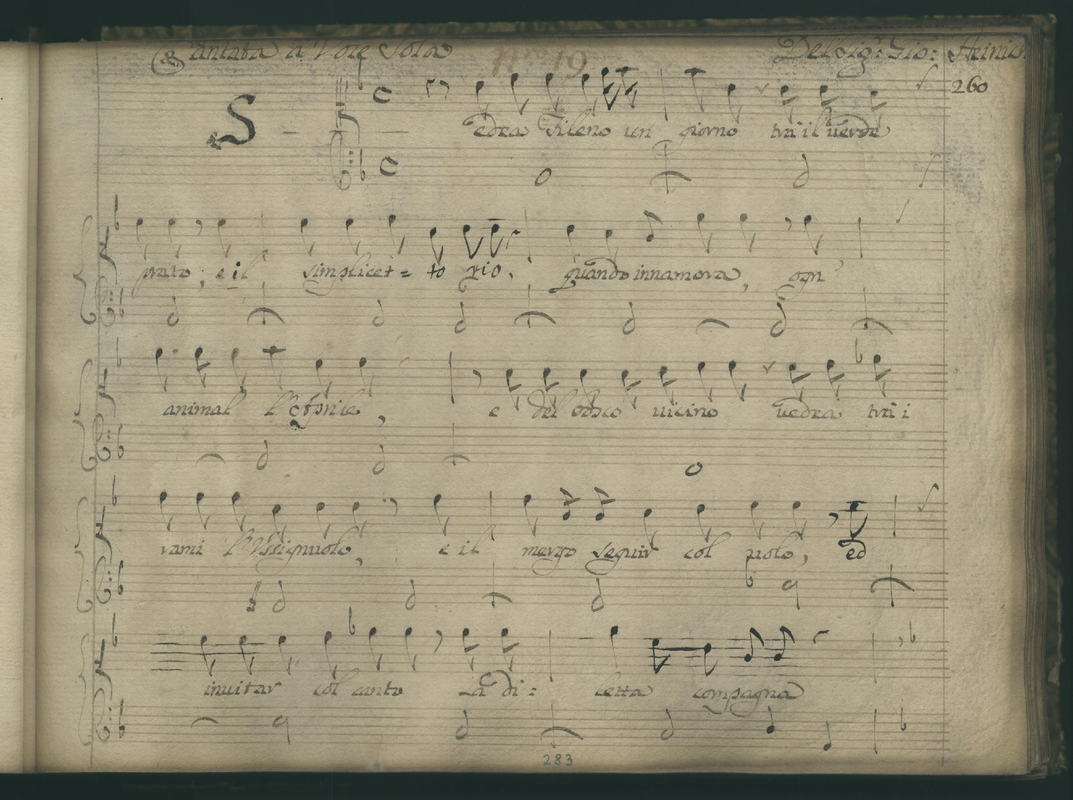 Cantata a Voce Sola Nro 19 Del Sig: Gio: Heinic
260
S edea Fileno un giorno trà il uerde
prato, e il simplicet = to rio, quando innamora, ogn'
animal l'Aprile, e del bosco uicino uedea trà i
rami l'Vsignuolo, e il mergo seguir col uolo, ed
inuitar col canto La di: letta compagna
283